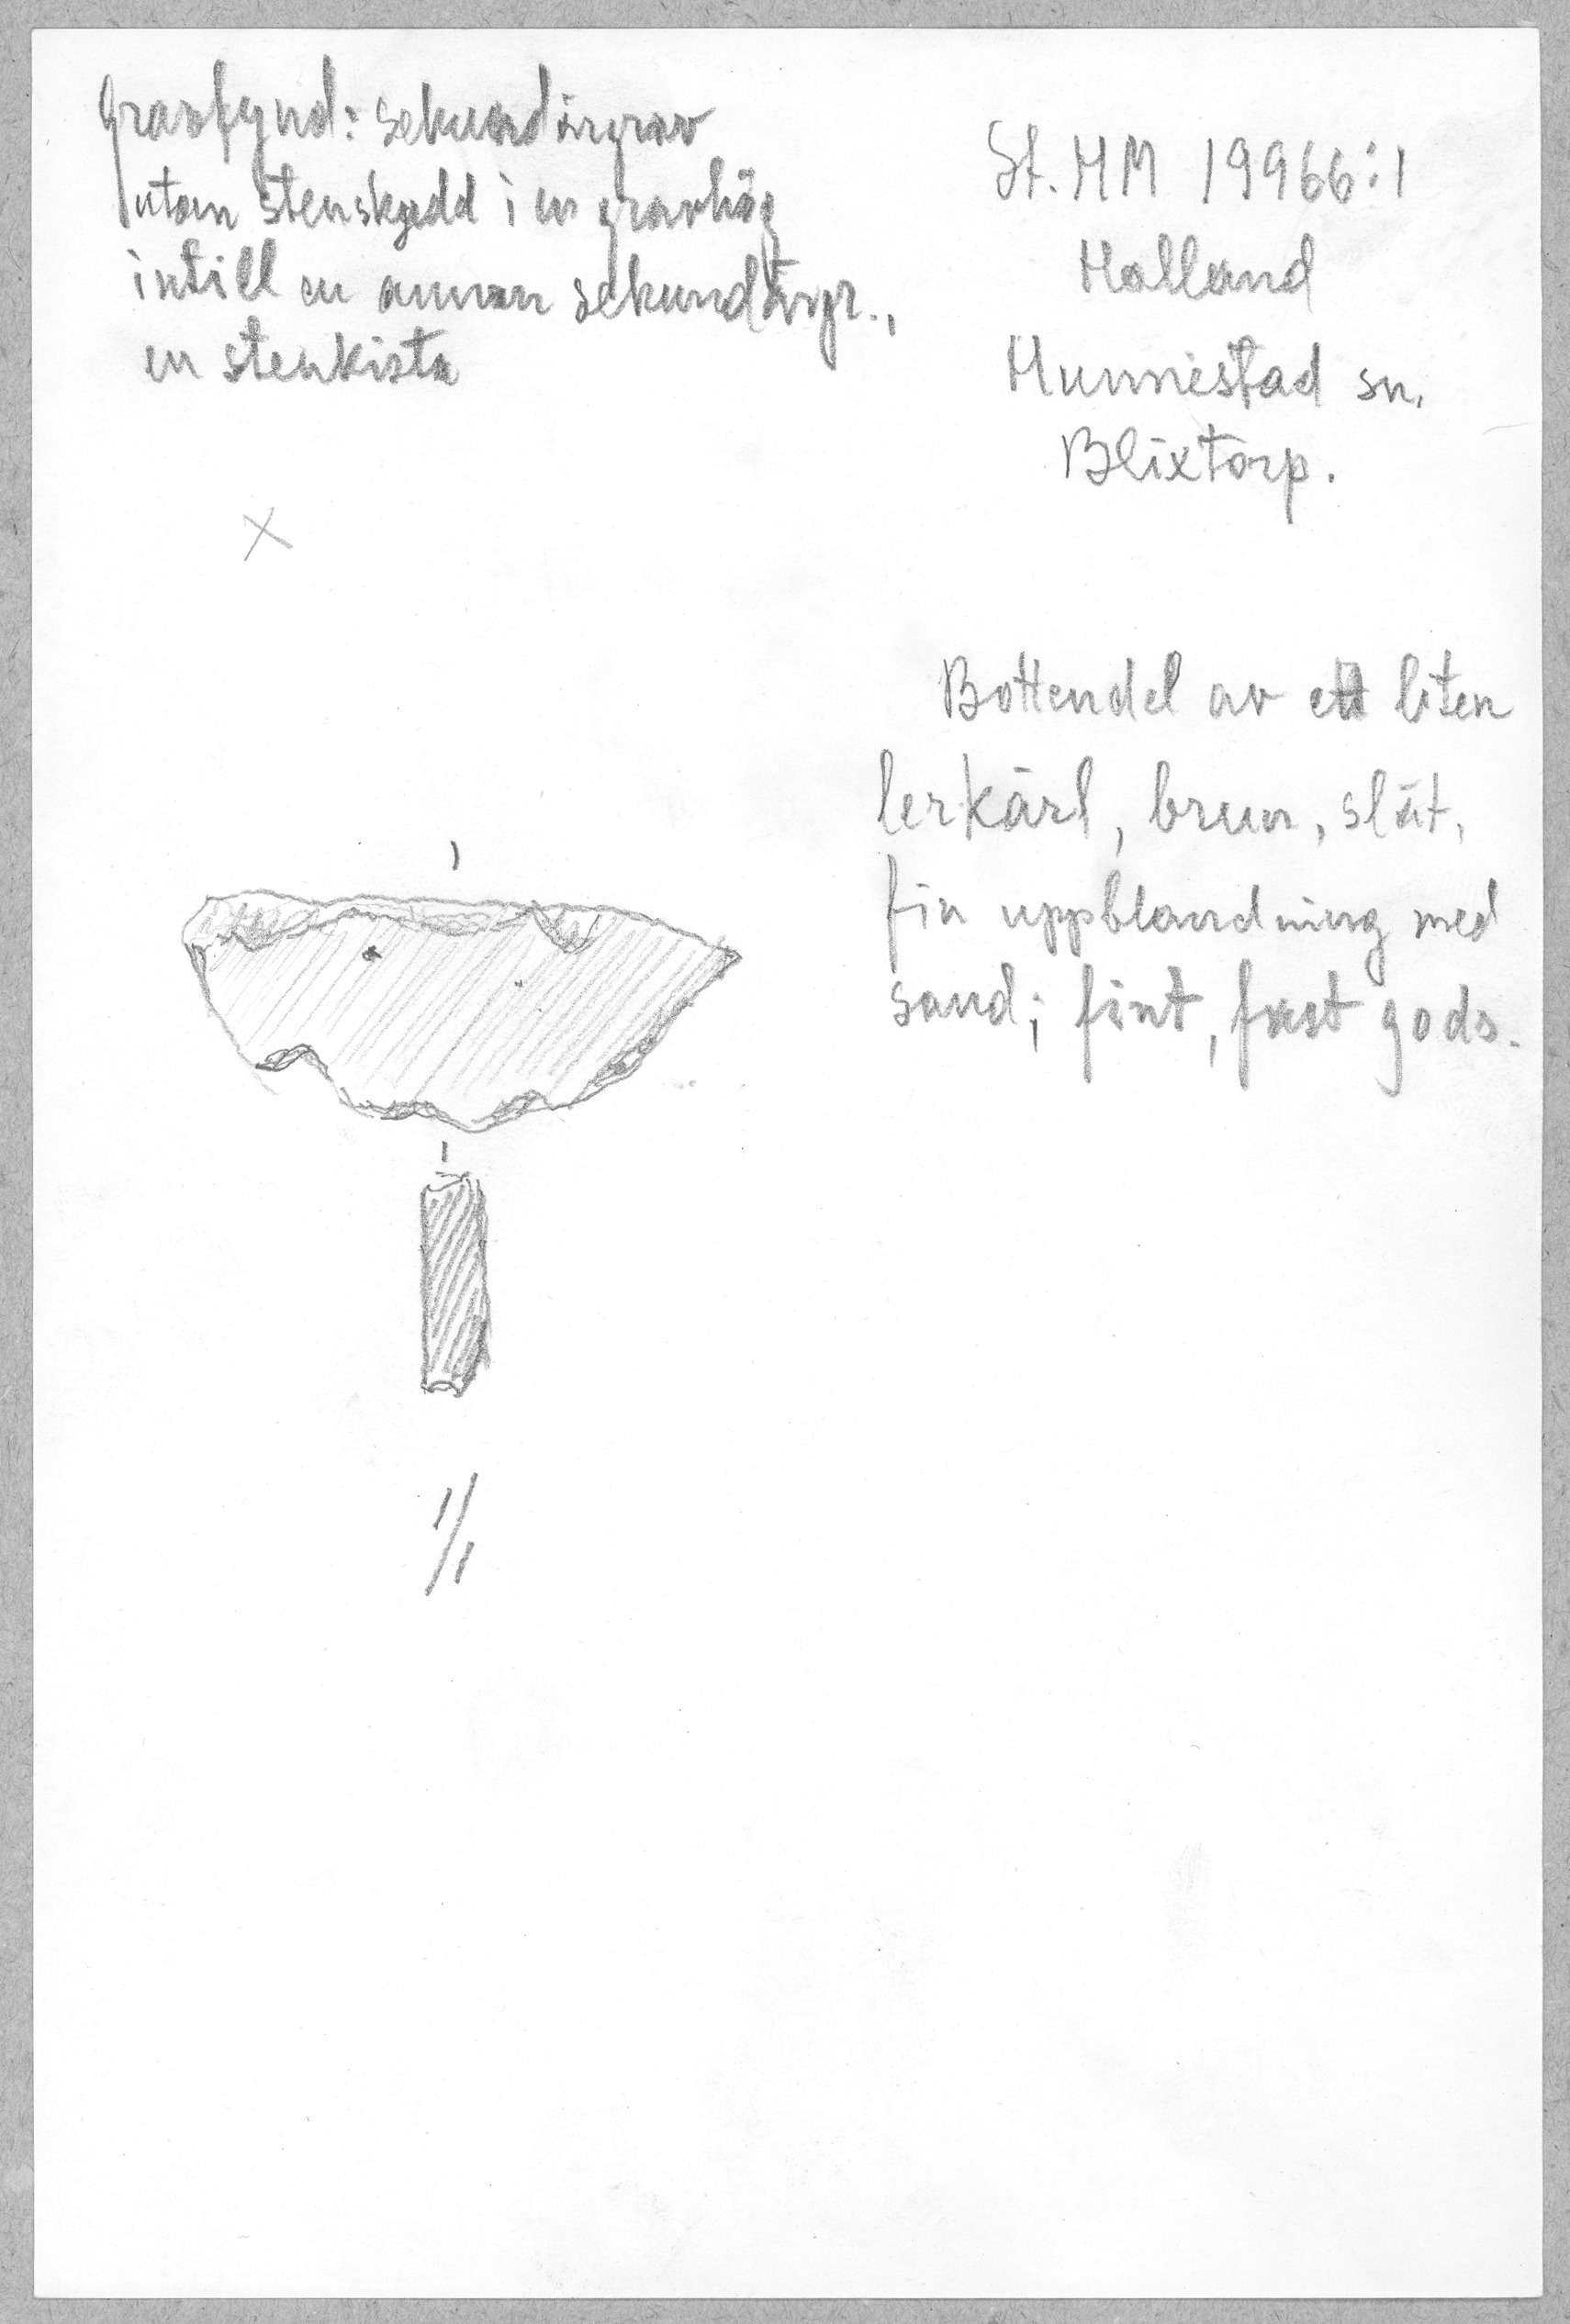 Gravfynd: sekundärgrav
utan stenskydd i en gravhög
intill en annan sekundärgr.,
en stenkista
St. HM 19966:1
Halland
Hunnestad sn.
Blixtorp.
X
Bottendel av ett liten
lerkärl, brun, slät,
fin uppblandning med
sand; fint, fast gods.
1/1